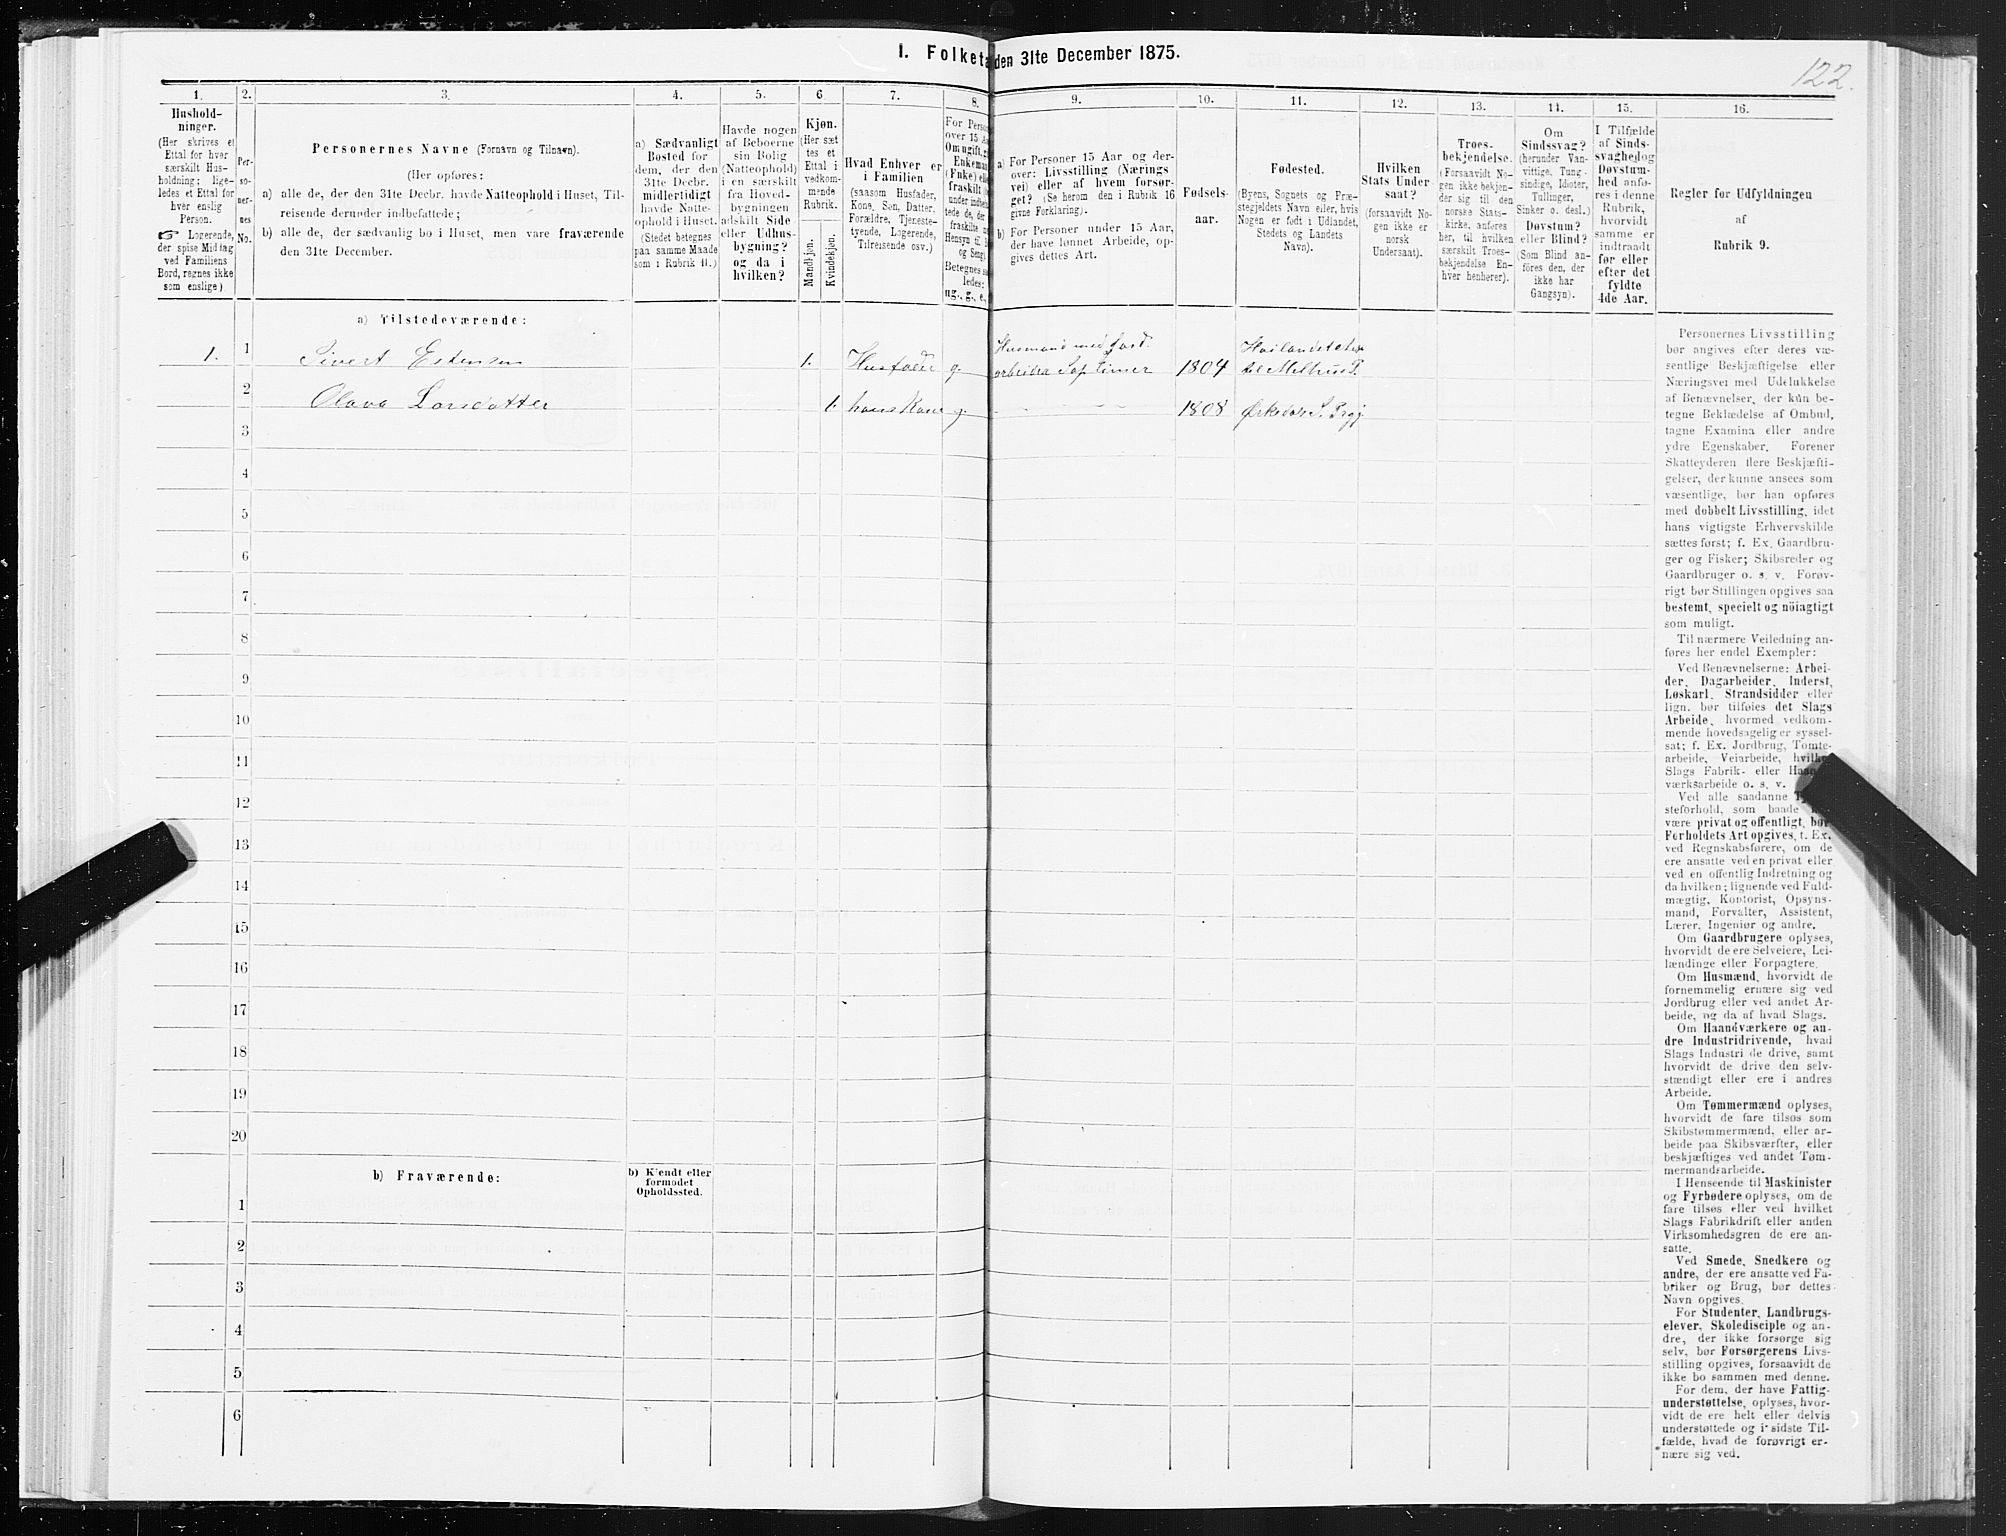 I. Folketæ den 31te December 1875.
122.
1.
Hushold-
ninger.
(Her skrives et
Ettal for hver
særskilt Hus-
holdning; lige-
ledes et Ettal for
hver enslig
Person.
☞ Logerende,
der spise Middag
ved Familiens
Bord, regnes ikke
som enslige)
2.
Per-
so-
ner-
nes
No.
3.
Personernes Navne (Fornavn og Tilnavn).
(Her opføres:
a) alle de, der den 31te Decbr. havde Natteophold i Huset, Til-
reisende derunder indbefattede;
b) alle de, der sædvanlig bo i Huset, men vare fraværende
den 31te December.
4.
a) Sædvanligt
Bosted for
dem, der den
31te Decbr.
midlertidigt
havde Natte-
ophold i Huset.
(Stedet betegnes
paa samme Maade
som i Rubrik 11.)
5.
Havde nogen
af Beboerne
sin Bolig
(Natteophold)
i en særskilt
fra Hoved-
bygningen
adskilt Side
eller Udhus-
bygning?
og da i
hvilken?
6
Kjøn.
(Her sæt
tes et
Ettal i
vedkom-
mende
Rubrik.
Mandkjøn.
Kvindekjøn.
7.
Hvad Enhver er
i Familien
(saasom Husfader,
Kone, Søn, Datter,
Forældre, Tjeneste-
tyende, Logerende,
Tilreisende osv.)
8.
For Pers
over 15 Aa
Om ugift, g
Enkeman
(Enke) ell
fraskilt
under indbe
tede de, de
fraskilte
Hensyn til B
og Seng)
Betegnes s
ledes:
ug., g., e.,
9.
a) For Personer 15 Aar og der-
over: Livsstilling (Nærings
vei) eller af hvem forsør-
get? (Se herom den i Rubrik 16
givne Forklaring).
b) For Personer under 15 Aar,
der have lønnet Arbeide, op-
gives dettes Art.
10.
Fødsels-
aar.
11.
Fødested.
(Byens, Sognets og Præ-
stegjeldets Navn eller, hvis
Nogen er født i Udlandet,
Stedets og Landets
Navn).
12.
Hvilken
Stats Under
saat?
(forsaavidt No-
gen ikke er
norsk
Undersaat).
13.
Troes-
bekjendelse.
(Forsaavidt No-
gen ikke bekjen-
der sig til den
norske Stats-
kirke, anføres
her, til hvilken
særskilt Troes-
bekjendelse En-
hver henhører).
14.
Om
Sindssvag?
(herunder Van-
vittige, Tung-
sindige, Idioter,
Tullinger,
Sinker o. desl.)
Døvstum?
eller Blind?
(Som Blind an-
føres den, der
ikke har
Gangsyn).
15.
I Tilfælde
af Sinds-
svaghed og
Døvstum-
hed anfø-
res i denne
Rubrik,
hvorvidt
samme er
indtraadt
før eller
efter det
fyldte
4de Aar.
16.
Regler for Udfyldningen
af
Rubrik 9.
a) Tilstedeværende:
1. 1 Sivert Estensen 1. g. Husmand med Jord 1804
2 Olava Larsdatter 1. hans Kone g. 1808
3
4
5
6
7
8
9
10
11
12
13
14
15
16
17
18
19
20
b) Fraværende:
b) Kjendt eller
formodet
Opholdssted.
1
2
3
4
5
6
Personernes Livsstilling
bør angives efter deres væ-
sentlige Beskjæftigelse eller
Næringsvei med Udelukkelse
af Benævnelser, der kun be-
tegne Beklædelse af Ombud,
tagne Examina eller andre
ydre Egenskaber. Forener
Skatteyderen flere Beskjæfti-
gelser, der kunne ansees som
væsentlige, bør han opføres
med dobbelt Livsstilling, idet
hans vigtigste Erhvervskilde
sættes først; f. Ex. Gaardbru-
ger og Fisker; Skibsreder og
Gaardbruger o. s. v. Forøv-
rigt bør Stillingen opgives saa
bestemt, specielt og nöiagtigt
som muligt.
Til nærmere Veiledning an-
føres her endel Exempler:
Ved Benævnelserne: Arbei-
der, Dagarbeider, Inderst,
Løskarl, Strandsidder eller
lign. bør tilføies det Slags
Arbeide, hvormed vedkom-
mende hovedsagelig er syssel-
sat; f. Ex. Jordbrug, Tømte-
arbeide, Veiarbeide, hvilke
Slags Fabrik- eller Haand
værksarbeide o. s. v.
Ved alle saadanne
steforhold, som baade
være privat og offentligt, bør
Forholdets Art opgives, t. Ex.
ved Regnskabsførere, om de
ere ansatte ved en privat eller
ved en offentlig Indretning og
da hvilken; lignende ved Fuld-
mægtig, Kontorist, Opsyns-
mand, Forvalter, Assistent,
Lærer, Ingeniør og andre.
Om Gaardbrugere oplyses,
hvorvidt de ere Selveiere, Lei-
lændinge eller Forpagtere.
Om Husmænd, hvorvidt de
fornemmelig ernære sig ved
Jordbrug eller ved andet Ar-
beide, og da af hvad Slags.
Om Haandværkere og an-
dre Industridrivende, hvad
Slags Industri de drive, samt
hvorvidt de drive den selv-
stændigt eller ere i andres
Arbeide.
Om Tømmermænd oplyses,
hvorvidt de fare tilsøs som
Skibstømmermænd, eller ar-
beide paa Skibsværfter, eller
beskjæftiges ved andet Tøm-
mermandsarbeide.
I Henseende til Maskinister
og Fyrbødere oplyses, om de
fare tilsøs eller ved hvilket
Slags Fabrikdrift eller anden
Virksomhedsgren de ere an-
satte.
Ved Smede, Snedkere og
andre, der ere ansatte ved Fa-
briker og Brug, bør dettes
Navn opgives.
For Studenter, Landbrugs-
elever, Skoledisciple og an-
dre, der ikke forsørge sig
selv, bør Forsørgerens Livs-
stilling opgives, forsaavidt de
ikke bo sammen med denne.
For dem, der have Fattig-
understøttelse, oplyses, hvor-
vidt de ere helt eller delvis
understøttede og i sidste Til-
fælde, hvad de forøvrigt er-
nære sig ved.